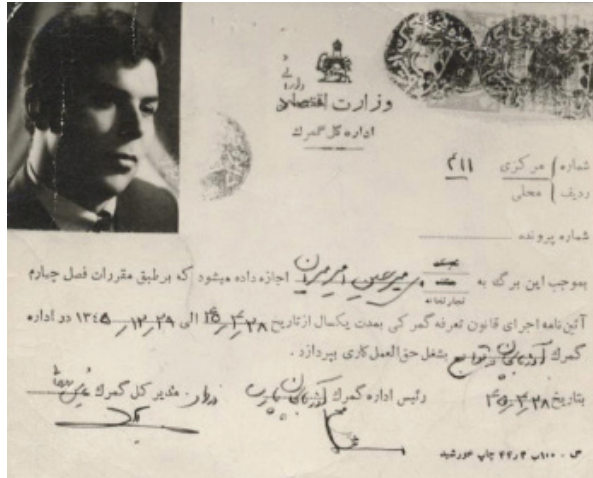 وزارت اقتصاد
اداره کل گمرک
شماره مرکزی ۴۱۱
ردیف محلی
شماره پرونده
بموجب این برگ به اجازه داده میشود که برطبق مقررات فصل چهارم
تجارتخانه
آئین‌نامه اجرای قانون تعرفه گمرکی بمدت یکسال از تاریخ ۴۵,۴,۲۸ الی ۱۳۴۵,۱۲,۲۹ در اداره
گمرک آذربایجان بشغل حق‌العمل‌کاری بپردازد.
بتاریخ ۴۵,۴,۲۸ رئیس اداره گمرک مدیر کل گمرک
چاپ خورشید